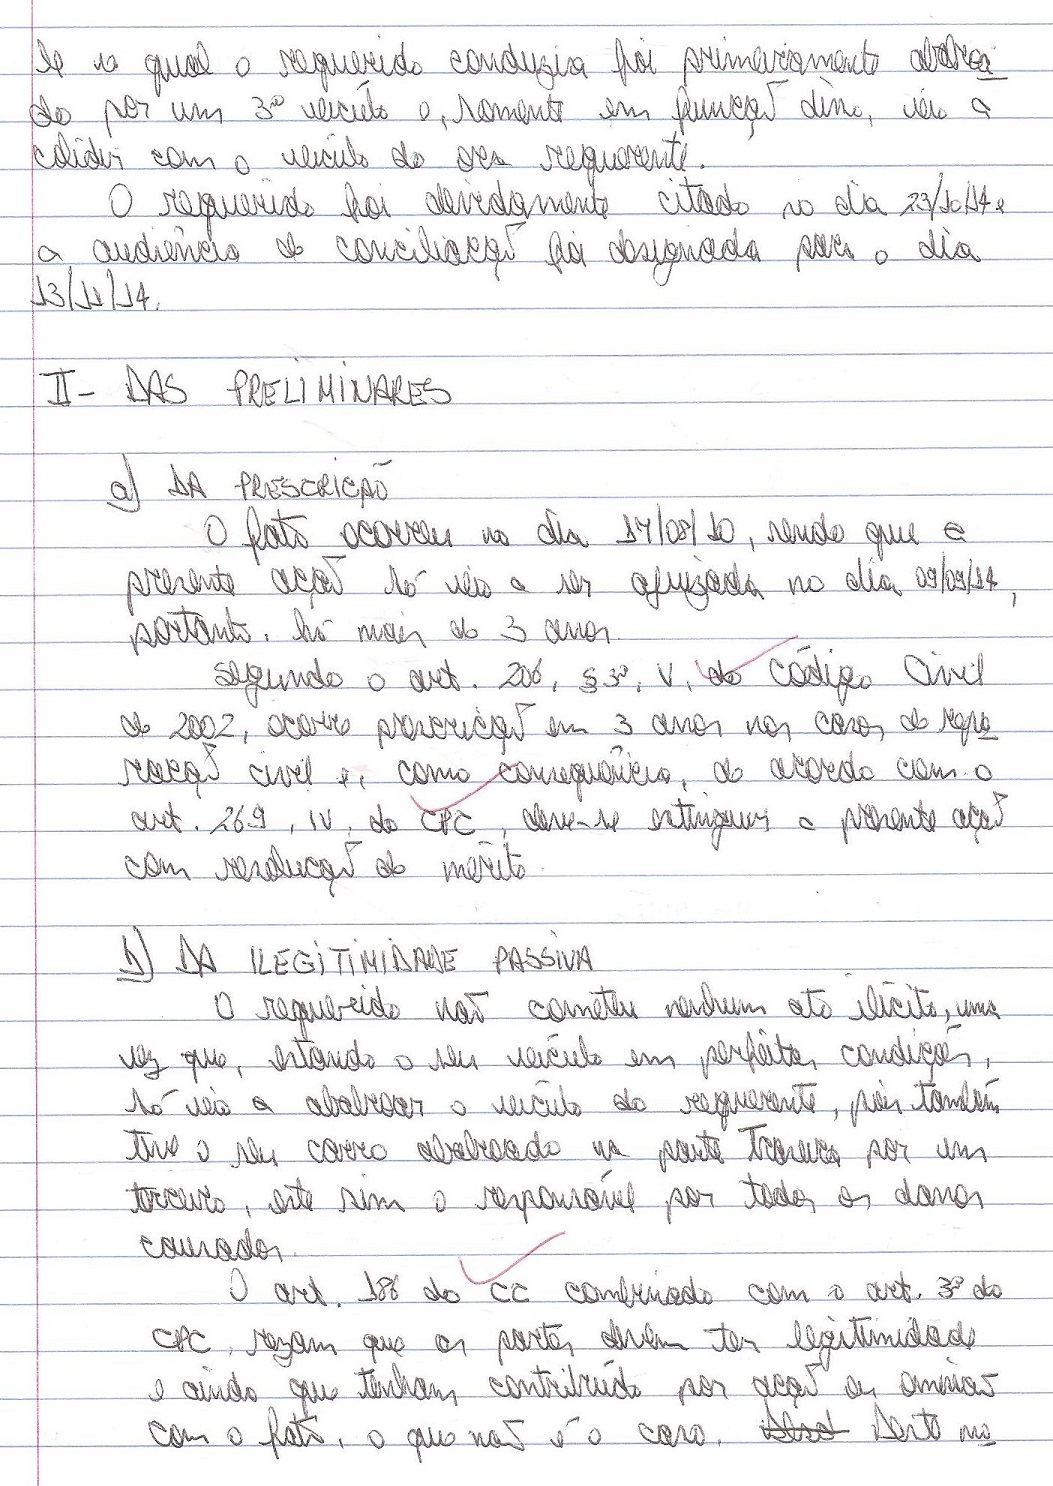 lo no qual o requerido conduzia foi primeiramente abalroa
do por um 3º veículo e, somente em função disso, veio a
colidir com o veículo do ora requerente.
O requerido foi devidamente citado no dia 23/10/14 e
a audiência de conciliação foi designada para o dia
13/11/14.
II - DAS PRELIMINARES
a) DA PRESCRIÇÃO
O fato ocorreu no dia 17/08/10, sendo que a
presente ação só veio a ser ajuizada no dia 09/09/14,
portanto, há mais de 3 anos.
Segundo o art. 206, §3º, V, do Código Civil
de 2002, ocorre prescrição em 3 anos nos casos de repa
ração civil e, como consequência, de acordo com o
art. 269, IV, do CPC, deve-se extinguir a presente ação
com resolução de mérito.
b) DA ILEGITIMIDADE PASSIVA
O requerido não cometeu nenhum ato ilícito, uma
vez que, estando o seu veículo em perfeitas condições,
só veio a abalroar o veículo do requerente, pois também
teve o seu carro abalroado na parte traseira por um
terceiro, este sim o responsável por todos os danos
causados.
O art. 186 do CC combinado com o art. 3º do
CPC, rezam que as partes devem ter legitimidade
e ainda que tenham contribuído por ação ou omissão
com o fato, o que não é o caso. Desto mo